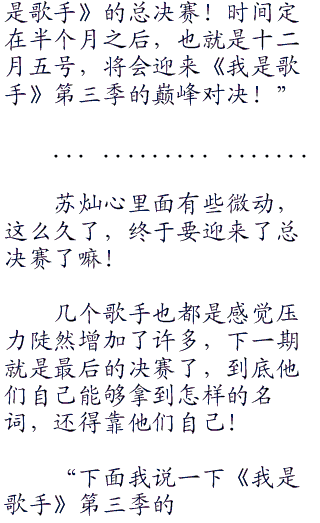 是歌手》的总决赛！时间定
在半个月之后，也就是十二
月五号，将会迎来《我是歌
手》第三季的巅峰对决！”
... ......... .......
苏灿心里面有些微动，
这么久了，终于要迎来了总
决赛了嘛！
几个歌手也都是感觉压
力陡然增加了许多，下一期
就是最后的决赛了，到底他
们自己能够拿到怎样的名
词，还得靠他们自己！
“下面我说一下《我是
歌手》第三季的